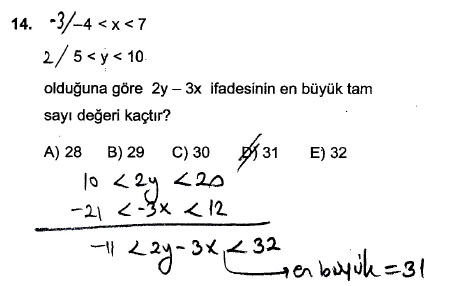 14. -3/-4 < x < 7
2/ 5 < y < 10
olduğuna göre 2y – 3x ifadesinin en büyük tam
sayı değeri kaçtır?
A) 28 B) 29 C) 30 D) 31 E) 32
10 < 2y < 20
-21 < -3x < 12
-11 < 2y - 3x < 32
en büyük = 31